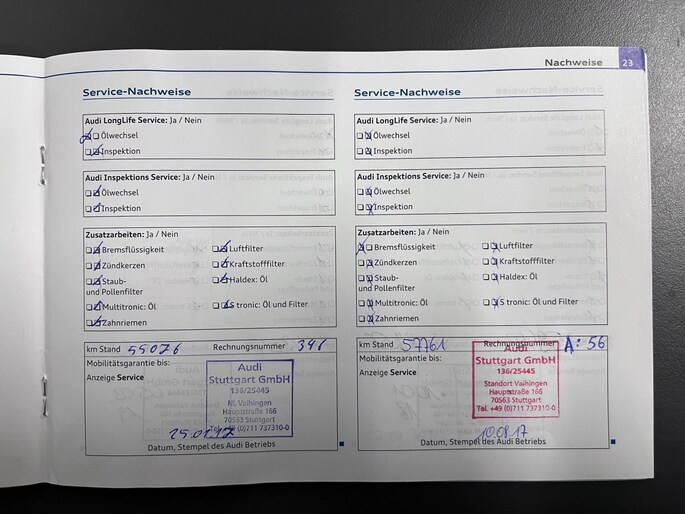 Nachweise 23
Service-Nachweise
Audi LongLife Service: Ja / Nein
Ölwechsel
Inspektion
Audi Inspektions Service: Ja / Nein
Ölwechsel
Inspektion
Zusatzarbeiten: Ja / Nein
Bremsflüssigkeit Luftfilter
Zündkerzen Kraftstofffilter
Staub- Haldex: Öl
und Pollenfilter
Multitronic: Öl S tronic: Öl und Filter
Zahnriemen
km Stand 55076 Rechnungsnummer
Mobilitätsgarantie bis:
Anzeige Service
Audi
Stuttgart GmbH
136/25445
NL Vaihingen
Hauptstraße 166
70563 Stuttgart
Tel. +49 (0)711 737310-0
25.01.17
Datum, Stempel des Audi Betriebs
Service-Nachweise
Audi LongLife Service: Ja / Nein
Ölwechsel
Inspektion
Audi Inspektions Service: Ja / Nein
Ölwechsel
Inspektion
Zusatzarbeiten: Ja / Nein
Bremsflüssigkeit Luftfilter
Zündkerzen Kraftstofffilter
Staub- Haldex: Öl
und Pollenfilter
Multitronic: Öl S tronic: Öl und Filter
Zahnriemen
km Stand 57761 Rechnungsnummer A: 56
Mobilitätsgarantie bis:
Anzeige Service
Audi
Stuttgart GmbH
136/25445
Standort Vaihingen
Hauptstraße 166
70563 Stuttgart
Tel. +49 (0)711 737310-0
10.08.17
Datum, Stempel des Audi Betriebs